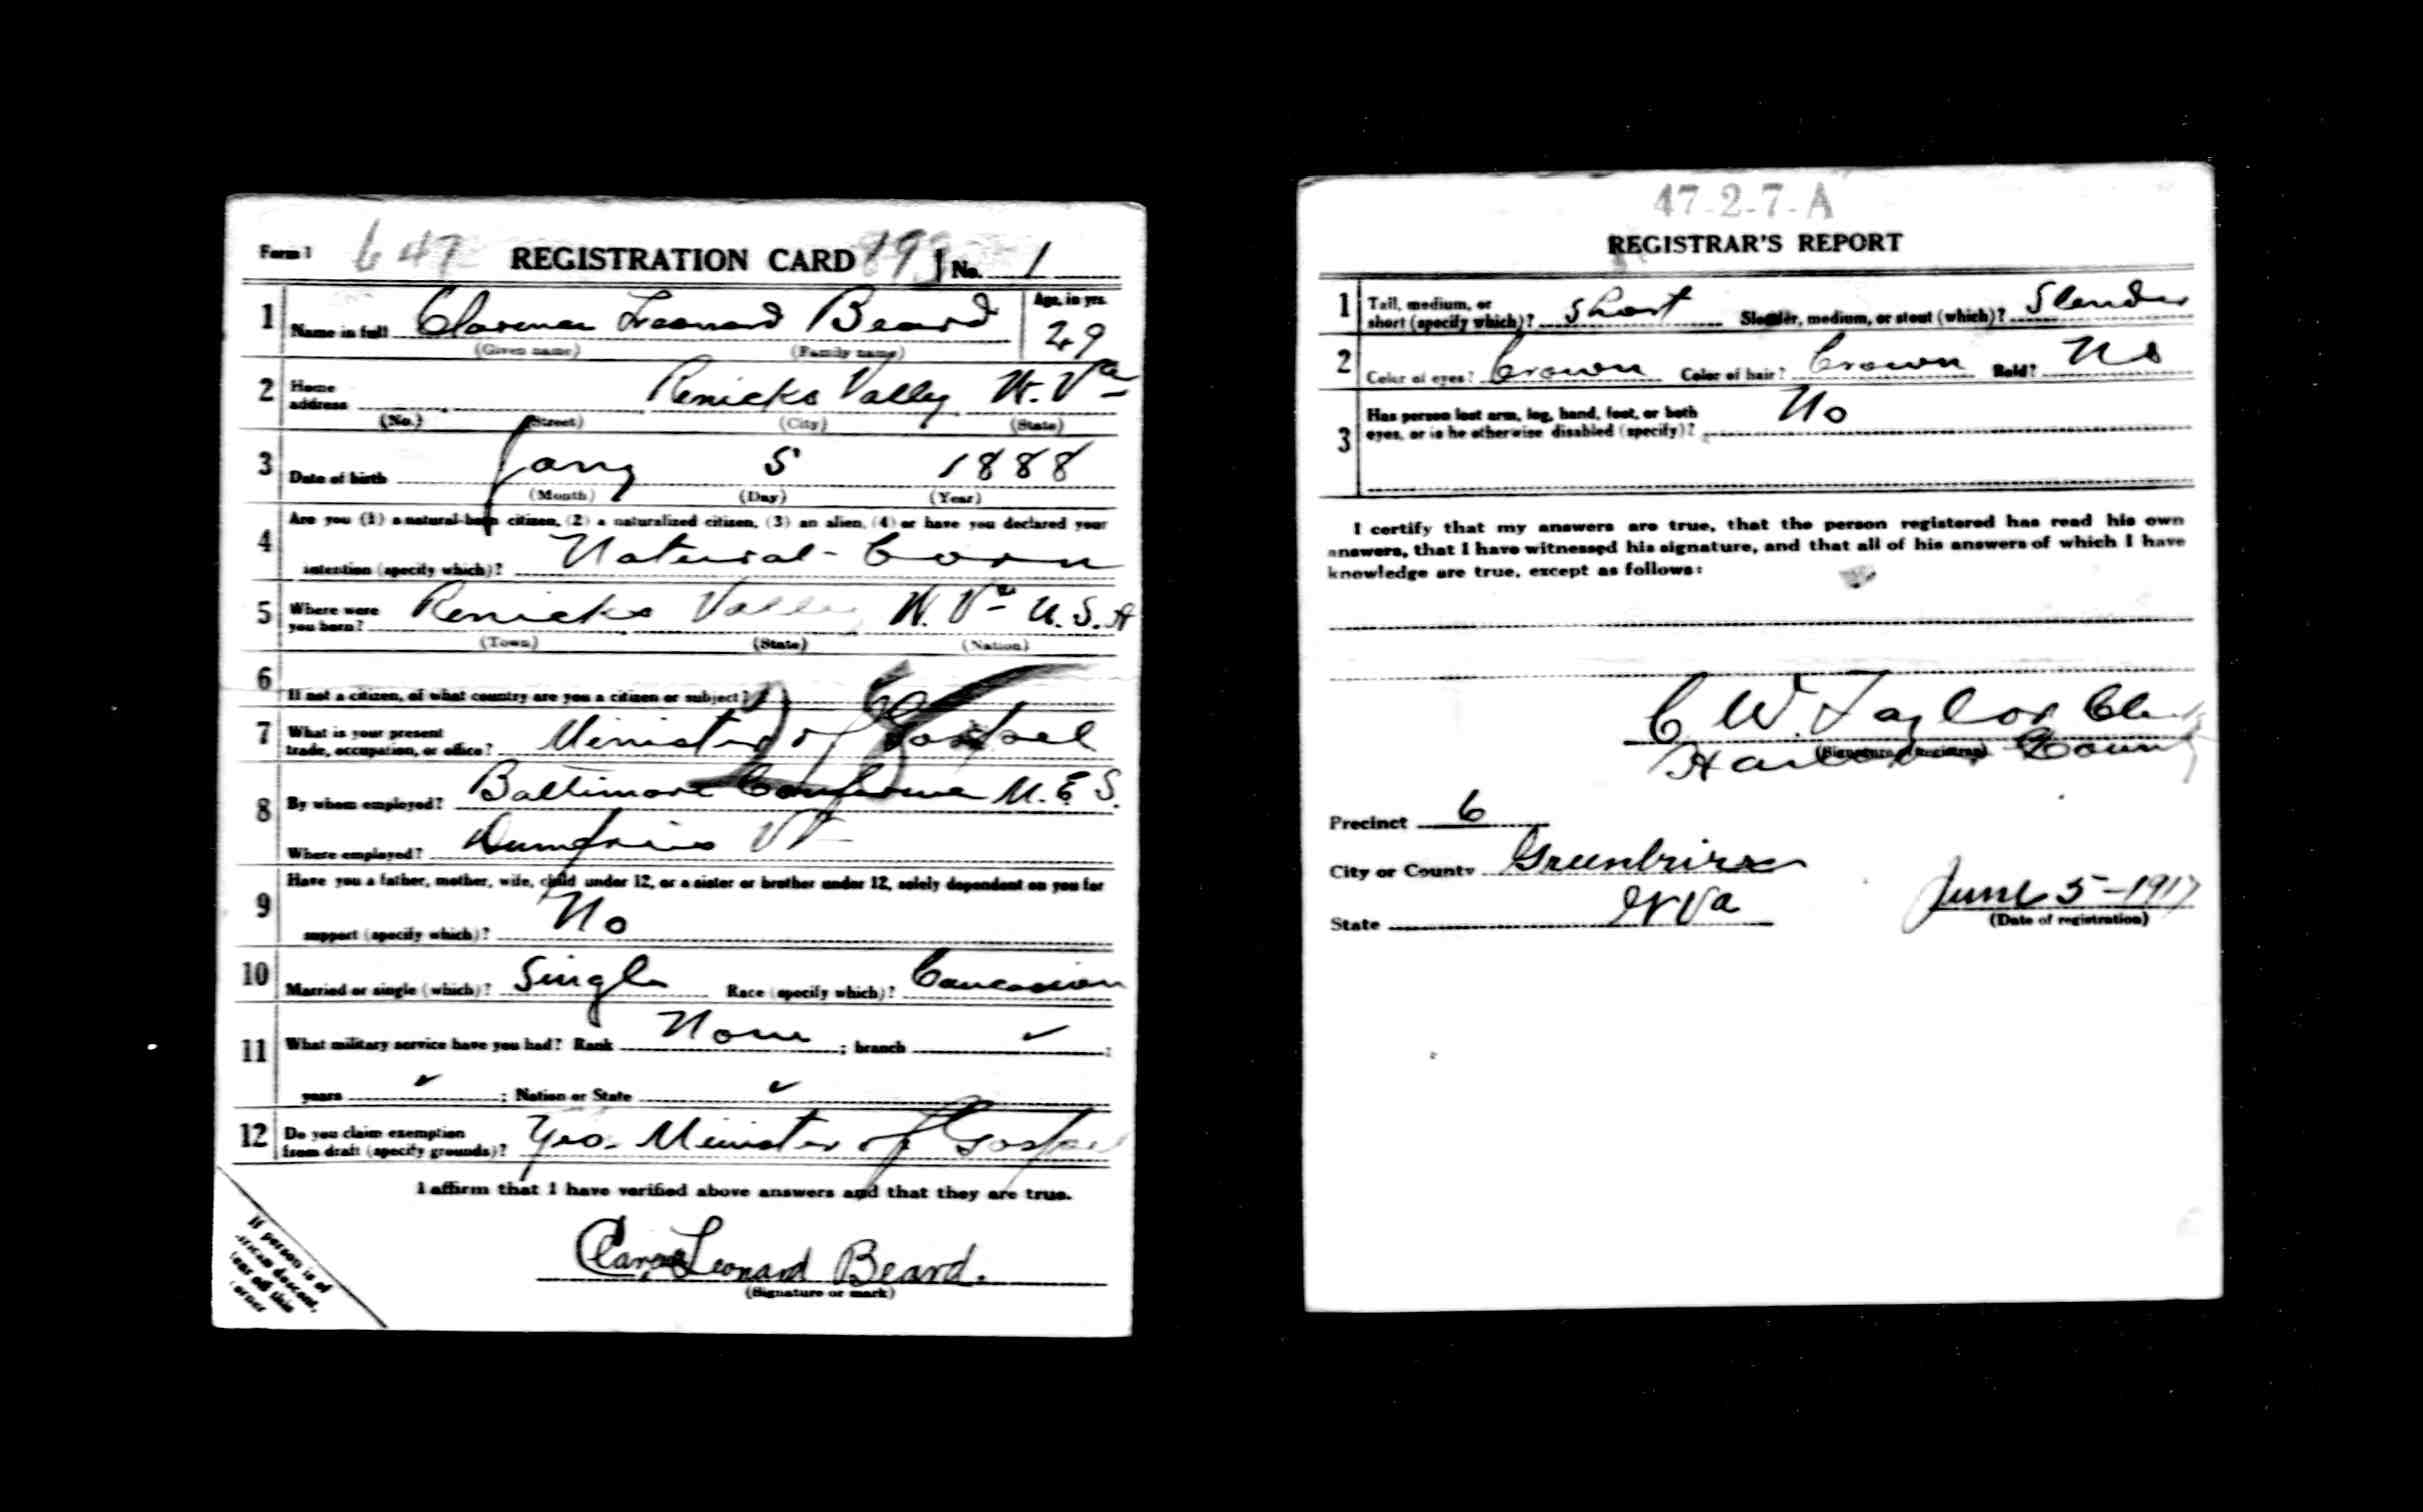 Form 1 647 REGISTRATION CARD No. 1
1 Name in full Clarence Leonard Beard Age, in yrs. 29
(Given name) (Family name)
2 Home address Renicks Valley W. Va
(No.) (Street) (City) (State)
3 Date of birth Jany 5 1888
(Month) (Day) (Year)
4 Are you (1) a natural-born citizen, (2) a naturalized citizen, (3) an alien, (4) or have you declared your
intention (specify which)? Natural-born
5 Where were you born? Renicks Valley W. Va U.S.A
(Town) (State) (Nation)
6 If not a citizen, of what country are you a citizen or subject?
7 What is your present trade, occupation, or office? Minister of Gospel
8 By whom employed? Baltimore Conference M.E.S.
Where employed? Dumfries Va
9 Have you a father, mother, wife, child under 12, or a sister or brother under 12, solely dependent on you for
support (specify which)? No
10 Married or single (which)? Single Race (specify which)? Caucasian
11 What military service have you had? Rank None ; branch ✓ ;
years ✓ ; Nation or State ✓
12 Do you claim exemption from draft (specify grounds)? Yes. Minister of Gospel
I affirm that I have verified above answers and that they are true.
Clarence Leonard Beard.
(Signature or mark)
If person is of
African descent,
tear off this
corner
47-2-7-A
REGISTRAR'S REPORT
1 Tall, medium, or short (specify which)? Short Slender, medium, or stout (which)? Slender
2 Color of eyes? brown Color of hair? brown Bald? No
3 Has person lost arm, leg, hand, foot, or both
eyes, or is he otherwise disabled (specify)? No
I certify that my answers are true, that the person registered has read his own
answers, that I have witnessed his signature, and that all of his answers of which I have
knowledge are true, except as follows:
C W. Taylor
(Signature of Registrar) County
Precinct 6
City or County Greenbrier
State W Va June 5-1917
(Date of registration)